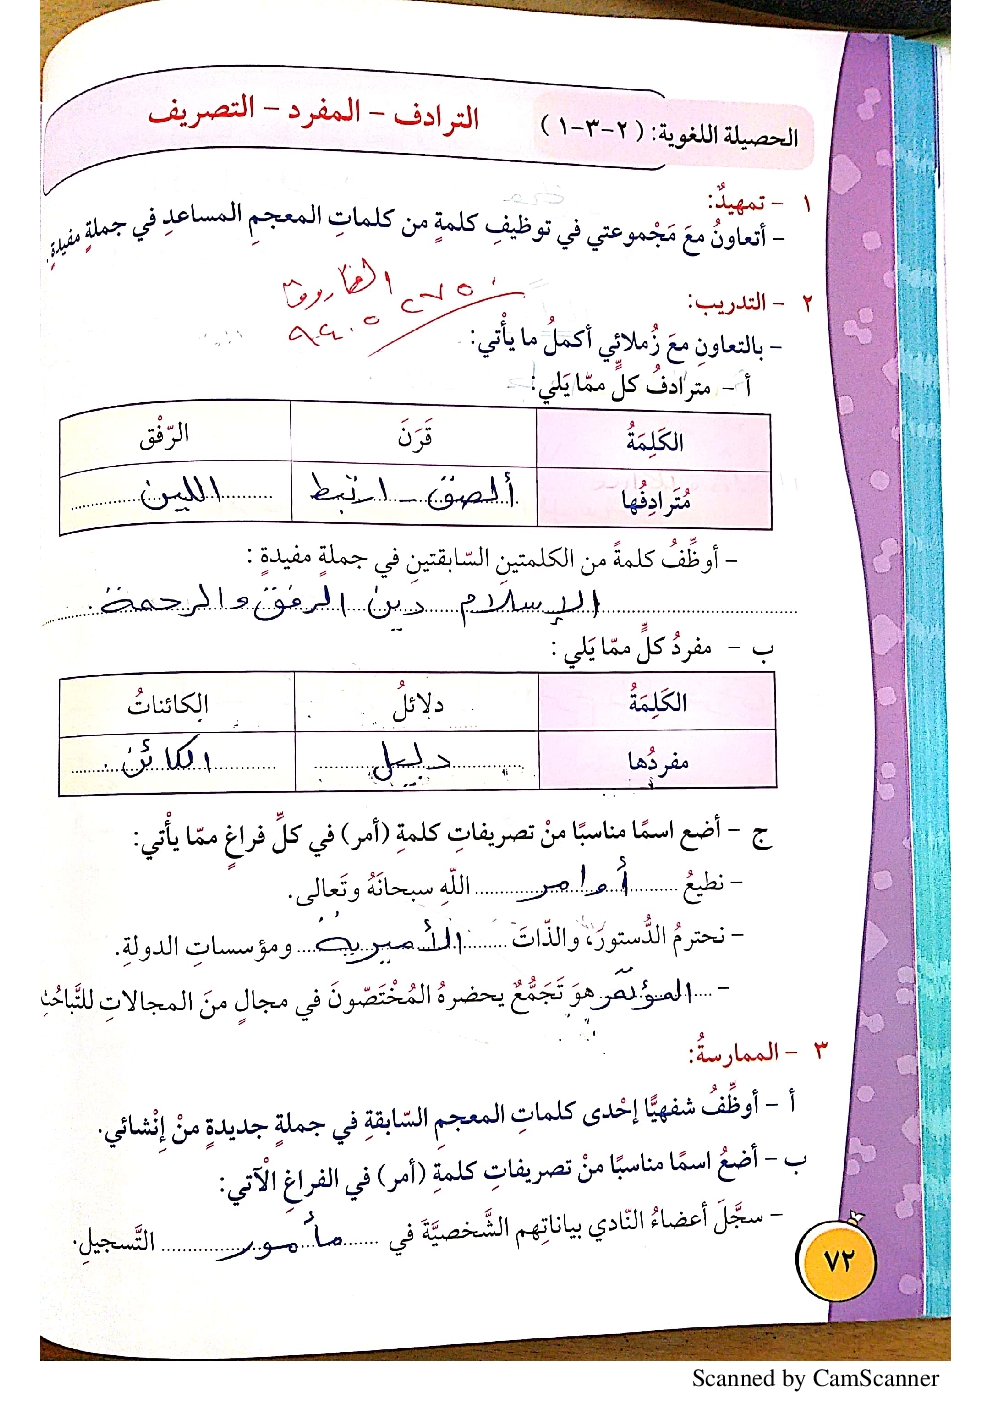 الحصيلة اللغوية: (٢-٣-١) الترادف - المفرد - التصريف
١ - تمهيدٌ:
- أتعاونُ معَ مَجْموعتي في توظيفِ كلمةٍ من كلماتِ المعجمِ المساعدِ في جملةٍ مفيدةٍ.
٢ - التدريب:
- بالتعاونِ معَ زُملائي أكملُ ما يأْتي:
أ - مترادفُ كلٍّ ممّا يَلي:
الكَلِمَةُ قَرَنَ الرّفْق
مُتَرادِفُها ألصق - ارتبط اللين
- أوظِّفُ كلمةً من الكلمتينِ السّابقتينِ في جملةٍ مفيدةٍ :
الإسلام دين الرفق والرحمة.
ب - مفردُ كلٍّ ممّا يَلي :
الكَلِمَةُ دلائلُ الكائناتُ
مفردُها دليل الكائن
ج - أضع اسمًا مناسبًا منْ تصريفاتِ كلمةِ (أمر) في كلِّ فراغٍ ممّا يأْتي:
- نطيعُ أوامر اللّهِ سبحانَهُ وتَعالى.
- نحترمُ الدُّستورَ، والذّاتَ الأميرية ومؤسساتِ الدولةِ.
- المؤتمر هوَ تَجَمُّعٌ يحضرهُ المُخْتَصّونَ في مجالٍ منَ المجالاتِ للتَّباحُثِ
٣ - الممارسةُ:
أ - أوظِّفُ شفهيًّا إحْدى كلماتِ المعجمِ السّابقةِ في جملةٍ جديدةٍ منْ إِنْشائي.
ب - أضعُ اسمًا مناسبًا منْ تصريفاتِ كلمةِ (أمر) في الفراغِ الْآتي:
- سجَّلَ أعضاءُ النّادي بياناتِهم الشَّخصيَّةَ في مأمور التَّسجيلِ.
٧٢
Scanned by CamScanner